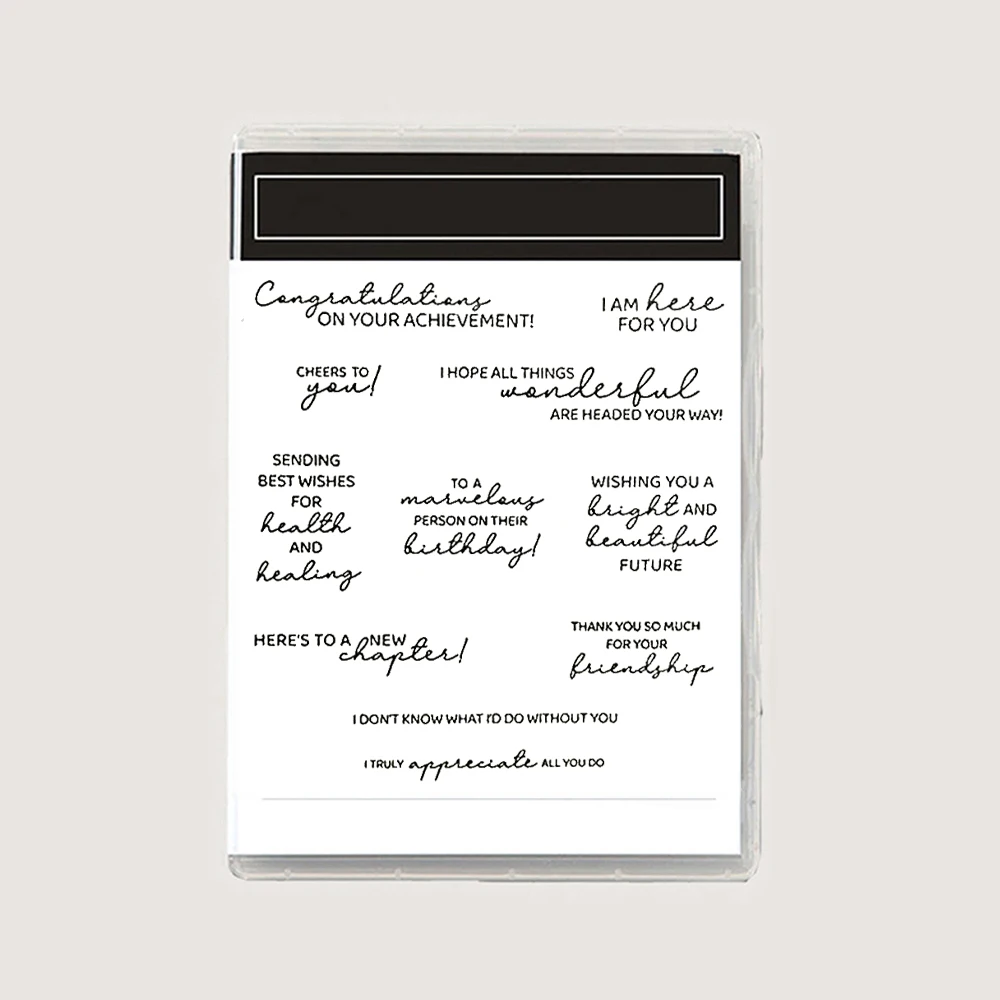 Congratulations
ON YOUR ACHIEVEMENT!
I AM here
FOR YOU
CHEERS TO
you!
I HOPE ALL THINGS
wonderful
ARE HEADED YOUR WAY!
SENDING
BEST WISHES
FOR
health
AND
healing
TO A
marvelous
PERSON ON THEIR
birthday!
WISHING YOU A
bright AND
beautiful
FUTURE
HERE'S TO A NEW
chapter!
THANK YOU SO MUCH
FOR YOUR
friendship
I DON'T KNOW WHAT I'D DO WITHOUT YOU
I TRULY appreciate ALL YOU DO